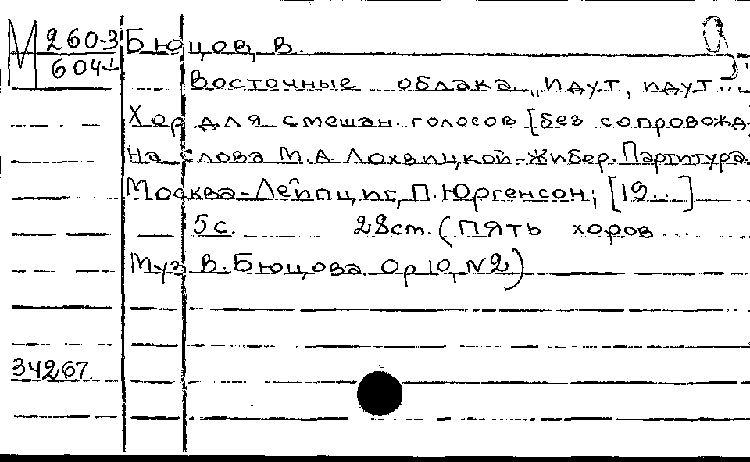 М 260-3
604-1
Бюцов, В.
Восточные облака „идут, идут..."
Хор для смешан. голосов [без сопровожд.
На слова М.А Лохвицкой-Жибер. Партитура.
Москва-Лейпциг, П. Юргенсон, [19...]
5 с. 28 cm. (Пять хоров
Муз В. Бюцова. Op 10, №2)
34267